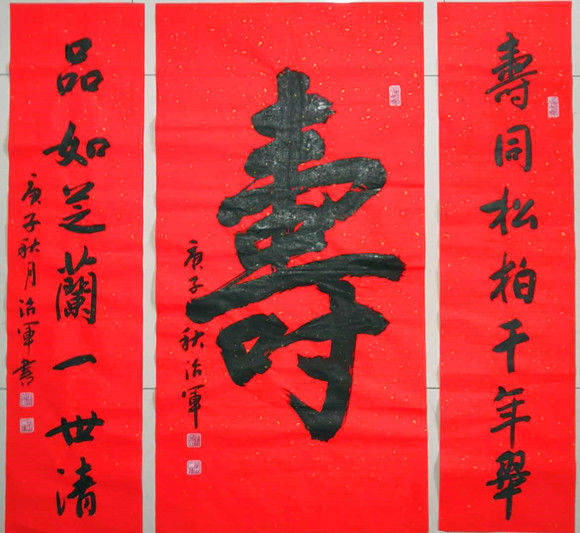 壽同松柏千年翠
壽
庚子秋治軍
品如芝蘭一世清
庚子秋月治軍書